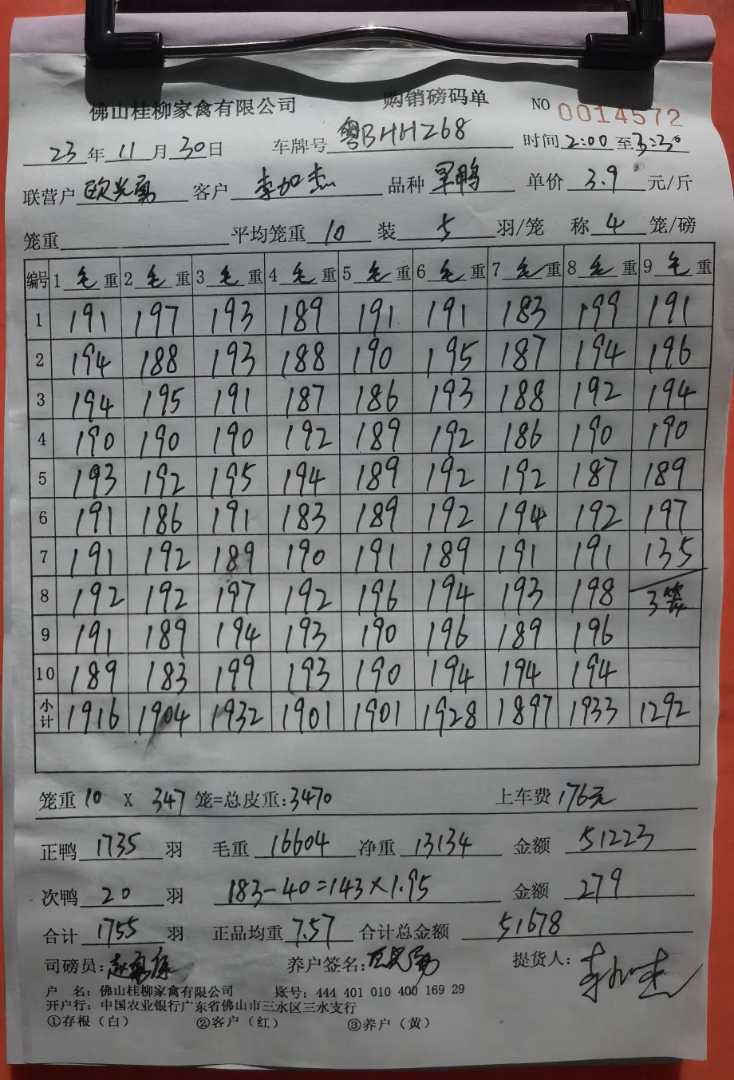 佛山桂柳家禽有限公司 购销磅码单 NO 0014572
23年11月30日 车牌号 粤BHH268 时间 2:00至3:30
联营户 欧光勇 客户 李加杰 品种 旱鸭 单价 3.9 元/斤
笼重 平均笼重 10 装 5 羽/笼 称 4 笼/磅
编号 1 毛 重 2 毛 重 3 毛 重 4 毛 重 5 毛 重 6 毛 重 7 毛 重 8 毛 重 9 毛 重
1 191 197 193 189 191 191 183 199 191
2 194 188 193 188 190 195 187 194 196
3 194 195 191 187 186 193 188 192 194
4 190 190 190 192 189 192 186 190 190
5 193 192 195 194 189 192 192 187 189
6 191 186 191 183 189 192 194 192 197
7 191 192 189 190 191 189 191 191 135
8 192 192 197 192 196 194 193 198 3笼
9 191 189 194 193 190 196 189 196
10 189 183 199 193 190 194 194 194
小计 1916 1904 1932 1901 1901 1928 1897 1933 1292
笼重 10 X 347 笼=总皮重:3470 上车费 176元
正鸭 1735 羽 毛重 16604 净重 13134 金额 51223
次鸭 20 羽 183-40=143×1.95 金额 279
合计 1755 羽 正品均重 7.57 合计总金额 51678
司磅员: 养户签名: 提货人: 李加杰
户 名: 佛山桂柳家禽有限公司 账号: 444 401 010 400 169 29
开户行: 中国农业银行广东省佛山市三水区三水支行
①存根(白) ②客户(红) ③养户(黄)